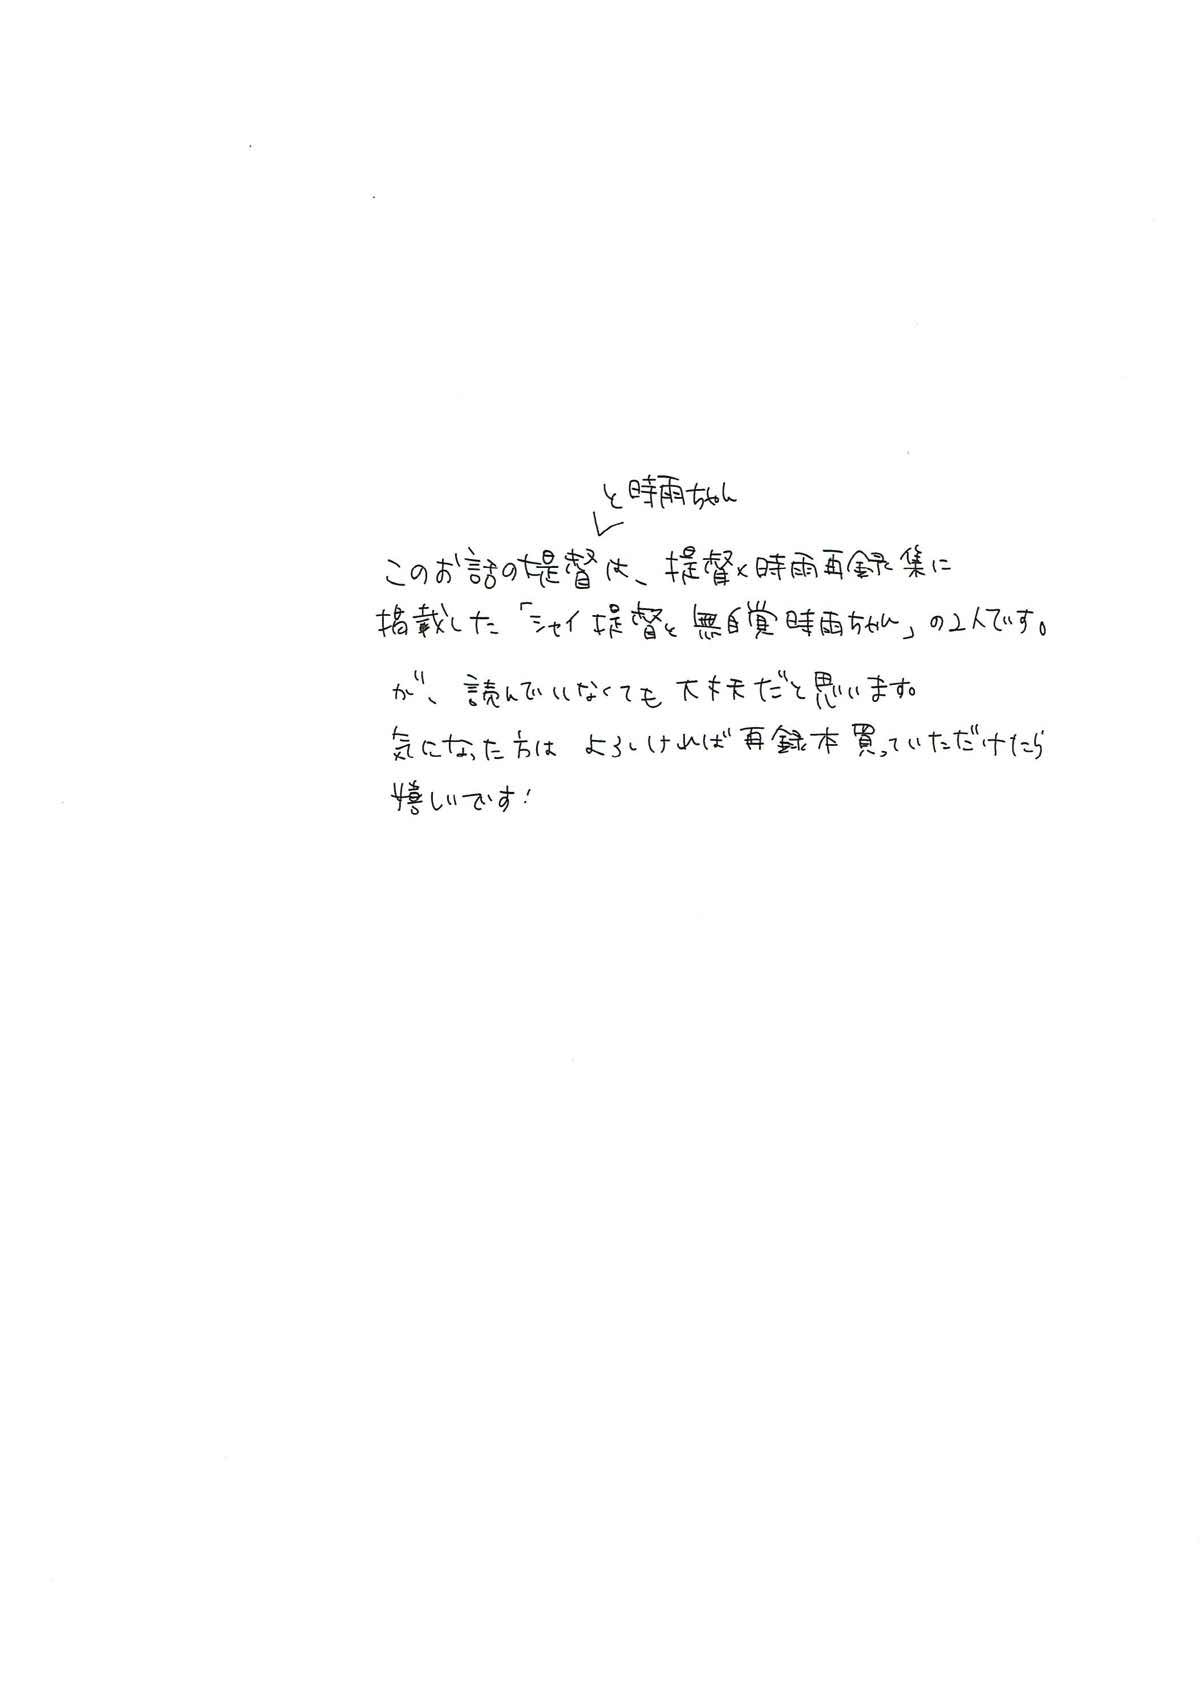 と時雨ちゃん
このお話の提督は、提督×時雨再録集に
掲載した「シャイ提督と無自覚時雨ちゃん」の2人です。
が、読んでいなくても大丈夫だと思います。
気になった方は よろしければ再録本買っていただけたら
嬉しいです!